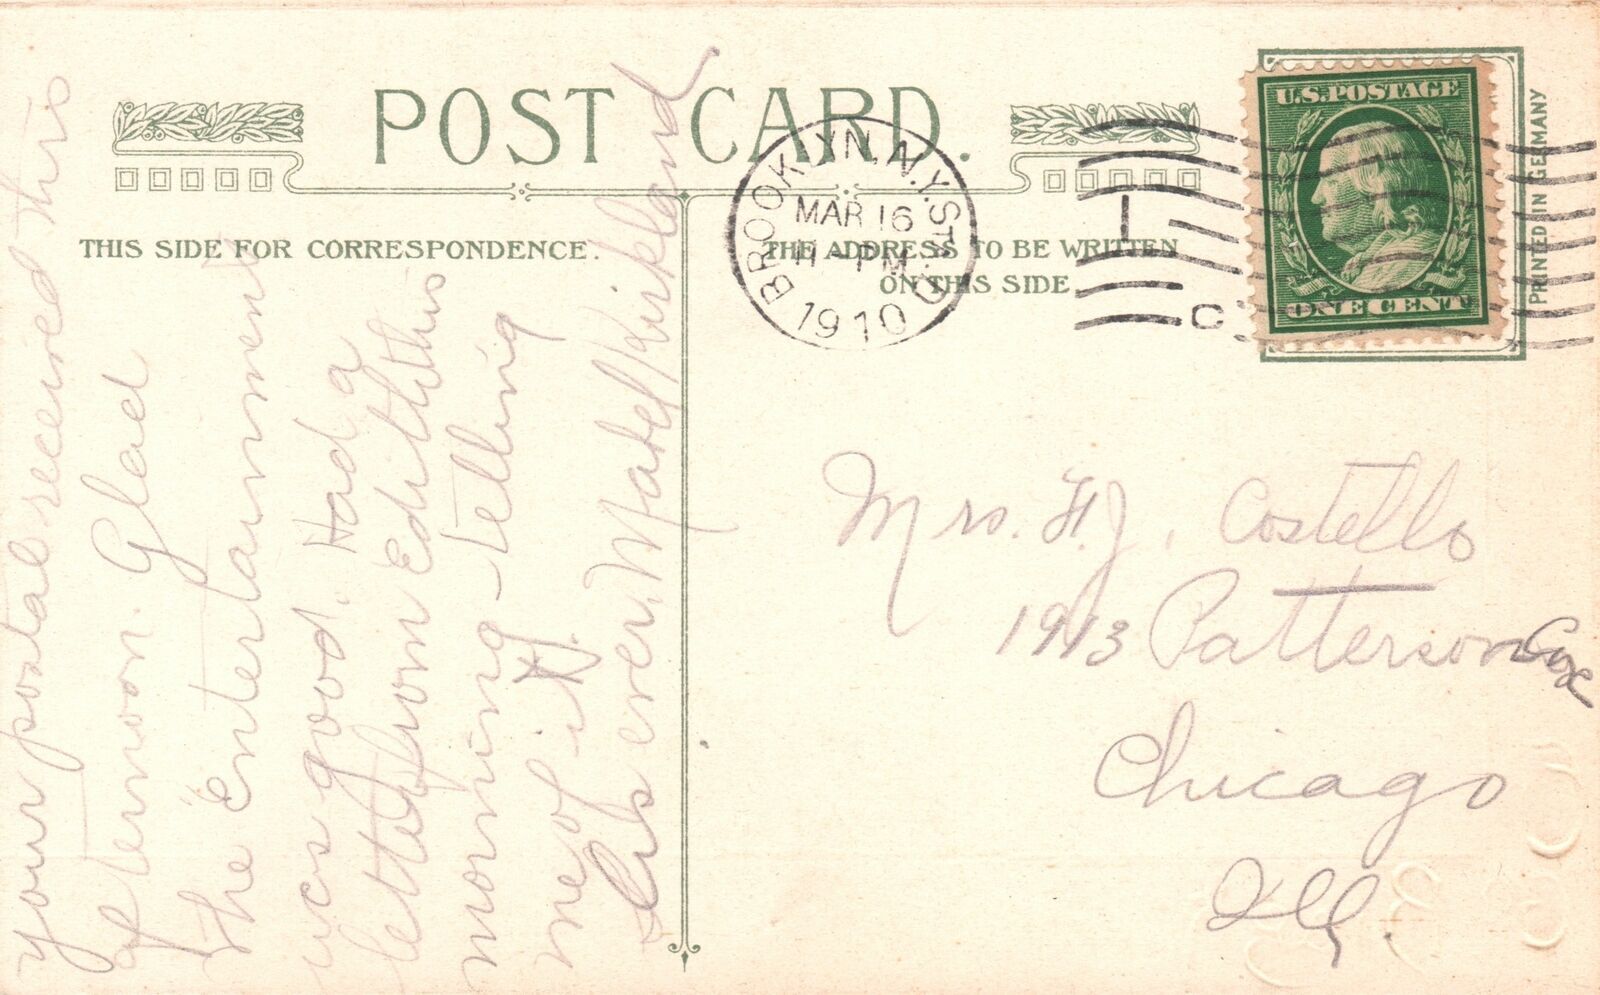 POST CARD.
THIS SIDE FOR CORRESPONDENCE.
THE ADDRESS TO BE WRITTEN
ON THIS SIDE
BROOKLYN, N.Y. STA.
MAR 16
11-PM
1910
1
C
U.S. POSTAGE
ONE CENT
PRINTED IN GERMANY
your postal received this
afternoon. Glad
the entertainment
was good. Had a
letter from Edith this
morning - telling
me of it.
As ever, Mabel Kirkland
Mrs. F. J. Costello
1913 Patterson Ave
Chicago
Ill.